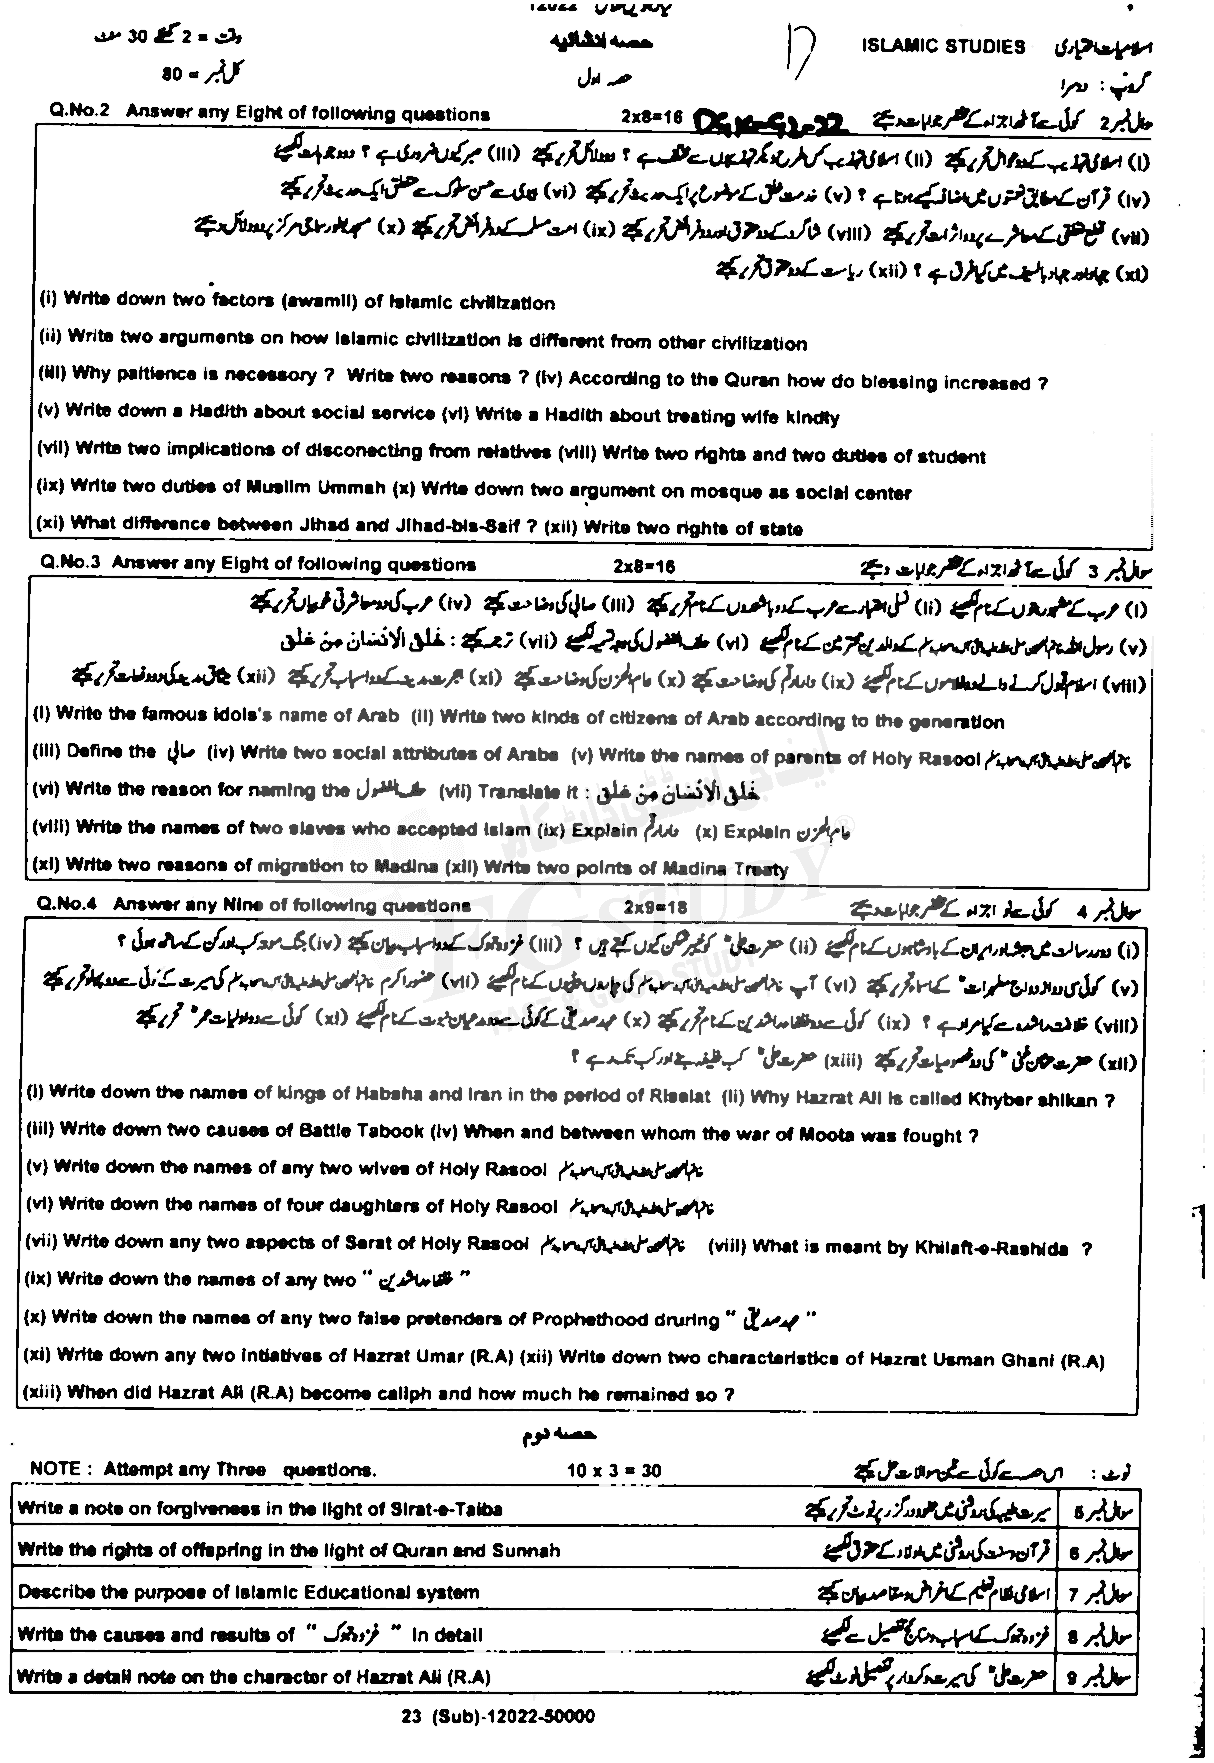 وقت = 2 گھنٹے 30 منٹ حصہ انشائیہ ISLAMIC STUDIES اسلامیات اختیاری
کل نمبر = 80 حصہ اول گروپ : دوسرا
Q.No.2 Answer any Eight of following questions 2x8=16 سوال نمبر 2 کوئی سے آٹھ اجزاء کے مختصر جوابات دیجئے
(i) اسلامی تہذیب کے دو عوامل تحریر کیجئے (ii) اسلامی تہذیب کس طرح دیگر تہذیبوں سے مختلف ہے ؟ دو دلائل تحریر کیجئے (iii) صبر کیوں ضروری ہے ؟ دو وجوہات لکھیے
(iv) قرآن کے مطابق نعمتوں میں اضافہ کیسے ہوتا ہے ؟ (v) خدمت خلق کے موضوع پر ایک حدیث تحریر کیجئے (vi) بیوی سے حسن سلوک سے متعلق ایک حدیث تحریر کیجئے
(vii) قطع تعلقی کے معاشرے پر دو اثرات تحریر کیجئے (viii) شاگرد کے دو حقوق اور دو فرائض تحریر کیجئے (ix) امت مسلمہ کے دو فرائض تحریر کیجئے (x) مسجد بطور سماجی مرکز پر دو دلائل دیجئے
(xi) جہاد اور جہاد بالسیف میں کیا فرق ہے ؟ (xii) ریاست کے دو حقوق تحریر کیجئے
(i) Write down two factors (awamil) of Islamic civilization
(ii) Write two arguments on how Islamic civilization is different from other civilization
(iii) Why paitience is necessory ? Write two reasons ? (iv) According to the Quran how do blessing increased ?
(v) Write down a Hadith about social service (vi) Write a Hadith about treating wife kindly
(vii) Write two implications of disconecting from relatives (viii) Write two rights and two duties of student
(ix) Write two duties of Muslim Ummah (x) Write down two argument on mosque as social center
(xi) What difference between Jihad and Jihad-bis-Saif ? (xii) Write two rights of state
Q.No.3 Answer any Eight of following questions 2x8=16 سوال نمبر 3 کوئی سے آٹھ اجزاء کے مختصر جوابات دیجئے
(i) عرب کے مشہور بتوں کے نام لکھیے (ii) نسلی اعتبار سے عرب کے دو باشندوں کے نام تحریر کیجئے (iii) صابی کی وضاحت کیجئے (iv) عرب کی دو معاشرتی خوبیاں تحریر کیجئے
(v) رسول اللہ کے والدین محترمین کے نام لکھیے (vi) حلف الفضول کی وجہ تسمیہ لکھیے (vii) ترجمہ کیجئے : خَلَقَ الْاِنْسَانَ مِنْ عَلَقٍ
(viii) اسلام قبول کرنے والے دو غلاموں کے نام لکھیے (ix) دار ارقم کی وضاحت کیجئے (x) عام الحزن کی وضاحت کیجئے (xi) ہجرت مدینہ کے دو اسباب تحریر کیجئے (xii) میثاق مدینہ کی دو دفعات تحریر کیجئے
(i) Write the famous idols's name of Arab (ii) Write two kinds of citizens of Arab according to the generation
(iii) Define the صابی (iv) Write two social attributes of Arabs (v) Write the names of parents of Holy Rasool
(vi) Write the reason for naming the حلف الفضول (vii) Translate it : خَلَقَ الْاِنْسَانَ مِنْ عَلَقٍ
(viii) Write the names of two slaves who accepted Islam (ix) Explain دار ارقم (x) Explain عام الحزن
(xi) Write two reasons of migration to Madina (xii) Write two points of Madina Treaty
Q.No.4 Answer any Nine of following questions 2x9=18 سوال نمبر 4 کوئی سے نو اجزاء کے مختصر جوابات دیجئے
(i) دور رسالت میں حبشہ اور ایران کے بادشاہوں کے نام لکھیے (ii) حضرت علیؓ کو خیبر شکن کیوں کہتے ہیں ؟ (iii) غزوہ تبوک کے دو اسباب بیان کیجئے (iv) جنگ موتہ کب اور کن کے ساتھ ہوئی ؟
(v) کوئی سی دو ازواج مطہرات کے اسماء تحریر کیجئے (vi) آپ کی چاروں بیٹیوں کے نام لکھیے (vii) حضور اکرم کی سیرت کے کوئی سے دو پہلو تحریر کیجئے
(viii) خلافت راشدہ سے کیا مراد ہے ؟ (ix) کوئی سے دو خلفاء راشدین کے نام تحریر کیجئے (x) عہد صدیقی کے کوئی سے دو مدعیان نبوت کے نام لکھیے (xi) کوئی سے دو اولیات عمرؓ تحریر کیجئے
(xii) حضرت عثمان غنیؓ کی دو خصوصیات تحریر کیجئے (xiii) حضرت علیؓ کب خلیفہ بنے اور کب تک رہے ؟
(i) Write down the names of kings of Habsha and Iran in the period of Risalat (ii) Why Hazrat Ali is called Khyber shikan ?
(iii) Write down two causes of Battle Tabook (iv) When and between whom the war of Moota was fought ?
(v) Write down the names of any two wives of Holy Rasool
(vi) Write down the names of four daughters of Holy Rasool
(vii) Write down any two aspects of Serat of Holy Rasool (viii) What is meant by Khilaft-e-Rashida ?
(ix) Write down the names of any two " خلفاء راشدین "
(x) Write down the names of any two false pretenders of Prophethood druring " عہد صدیقی "
(xi) Write down any two intiatives of Hazrat Umar (R.A) (xii) Write down two characteristics of Hazrat Usman Ghani (R.A)
(xiii) When did Hazrat Ali (R.A) become caliph and how much he remained so ?
حصہ دوم
NOTE : Attempt any Three questions. 10 x 3 = 30 نوٹ : اس حصہ سے کوئی سے تین سوالات حل کیجئے
Write a note on forgiveness in the light of Sirat-e-Taiba سیرت طیبہ کی روشنی میں عفو و درگزر پر نوٹ تحریر کیجئے سوال نمبر 5
Write the rights of offspring in the light of Quran and Sunnah قرآن و سنت کی روشنی میں اولاد کے حقوق لکھیے سوال نمبر 6
Describe the purpose of Islamic Educational system اسلامی نظام تعلیم کے اغراض و مقاصد بیان کیجئے سوال نمبر 7
Write the causes and results of " غزوہ تبوک " in detail غزوہ تبوک کے اسباب و نتائج تفصیل سے لکھیے سوال نمبر 8
Write a detail note on the charactor of Hazrat Ali (R.A) حضرت علیؓ کی سیرت و کردار پر تفصیلی نوٹ لکھیے سوال نمبر 9
23 (Sub)-12022-50000